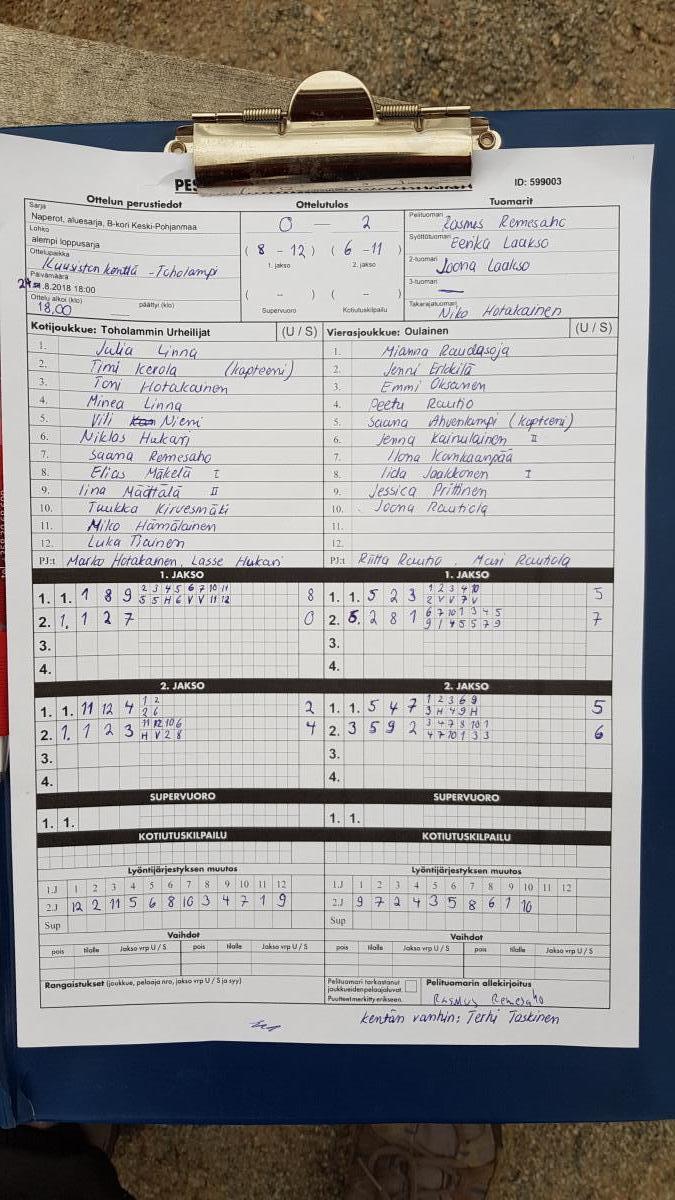 PES
ID: 599003
Ottelun perustiedot
Ottelutulos
Tuomarit
Sarja
Naperot, aluesarja, B-kori Keski-Pohjanmaa
Lohko
alempi loppusarja
Ottelupaikka
Kuusiston kenttä - Toholampi
Päivämäärä
.8.2018 18:00
Ottelu alkoi (klo) päättyi (klo)
18.00
0 — 2
( 8 - 12 ) ( 6 - 11 )
1. jakso 2. jakso
( -- ) ( -- )
Supervuoro Kotiutuskilpailu
Pelituomari Rasmus Remesaho
Syöttötuomari Eerika Laakso
2-tuomari Joona Laakso
3-tuomari —
Takarajatuomari Niko Hotakainen
Kotijoukkue: Toholammin Urheilijat (U / S)
1. Julia Linna
2. Timi Kerola (kapteeni)
3. Toni Hotakainen
4. Minea Linna
5. Vili Niemi
6. Niklas Hukari
7. Saana Remesaho
8. Elias Mäkelä I
9. Iina Määttälä II
10. Tuukka Kirvesmäki
11. Miko Hämäläinen
12. Luka Tiainen
PJ:t Marko Hotakainen, Lasse Hukari
Vierasjoukkue: Oulainen (U / S)
1. Mianna Raudasoja
2. Jenni Erkkilä
3. Emmi Oksanen
4. Peetu Rautio
5. Saana Ahvenlampi (kapteeni)
6. Jenna Kainulainen II
7. Ilona Konkaanpää
8. Iida Jaakkonen I
9. Jessica Prittinen
10. Joona Rautiola
11.
12.
PJ:t Riitta Rautio, Mari Rautiola
1. JAKSO
1. 1. 1 8 9 2 3 4 5 6 7 10 11 8
5 5 H 6 V V 11 12
2. 1. 1 2 7 0
3.
4.
1. JAKSO
1. 1. 5 2 3 1 2 3 4 10 5
2 V V 7 V
2. 5. 2 8 1 6 7 10 1 3 4 5 7
9 1 4 5 5 7 9
3.
4.
2. JAKSO
1. 1. 11 12 4 1 2 2
2 6
2. 1. 1 2 3 11 12 10 6 4
H V 2 8
3.
4.
2. JAKSO
1. 1. 5 4 7 1 2 3 6 9 5
3 H 4 9 H
2. 3 5 9 2 3 4 7 8 10 1 6
4 7 10 1 3 3
3.
4.
SUPERVUORO
1. 1.
SUPERVUORO
1. 1.
KOTIUTUSKILPAILU
KOTIUTUSKILPAILU
Lyöntijärjestyksen muutos
1.J 1 2 3 4 5 6 7 8 9 10 11 12
2.J 12 2 11 5 6 8 10 3 4 7 1 9
Sup
Lyöntijärjestyksen muutos
1.J 1 2 3 4 5 6 7 8 9 10 11 12
2.J 9 7 2 4 3 5 8 6 1 10
Sup
Vaihdot
pois tilalle Jakso vrp U / S pois tilalle Jakso vrp U / S
Vaihdot
pois tilalle Jakso vrp U / S pois tilalle Jakso vrp U / S
Rangaistukset (joukkue, pelaaja nro, jakso vrp U / S ja syy)
Pelituomari tarkastanut
joukkueiden pelaajaluvat.
Puutteet merkitty erikseen.
Pelituomarin allekirjoitus
Rasmus Remesaho
kentän vanhin: Terhi Taskinen